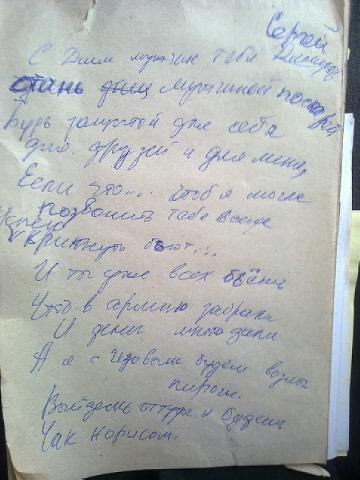 Серой
С Днем мужчин тебя
стань мужчиной поскорей
Будь защитой для себя
для друзей и для меня,
Если что... чтоб я могла
позвонить тебе всегда
Крикнуть бьют...
И ты уже всех
Что в армию забрали
И денег много дали
А я с Чезовым будем возить
пироги.
Выйдешь оттуда и будешь
Чак Норисом.